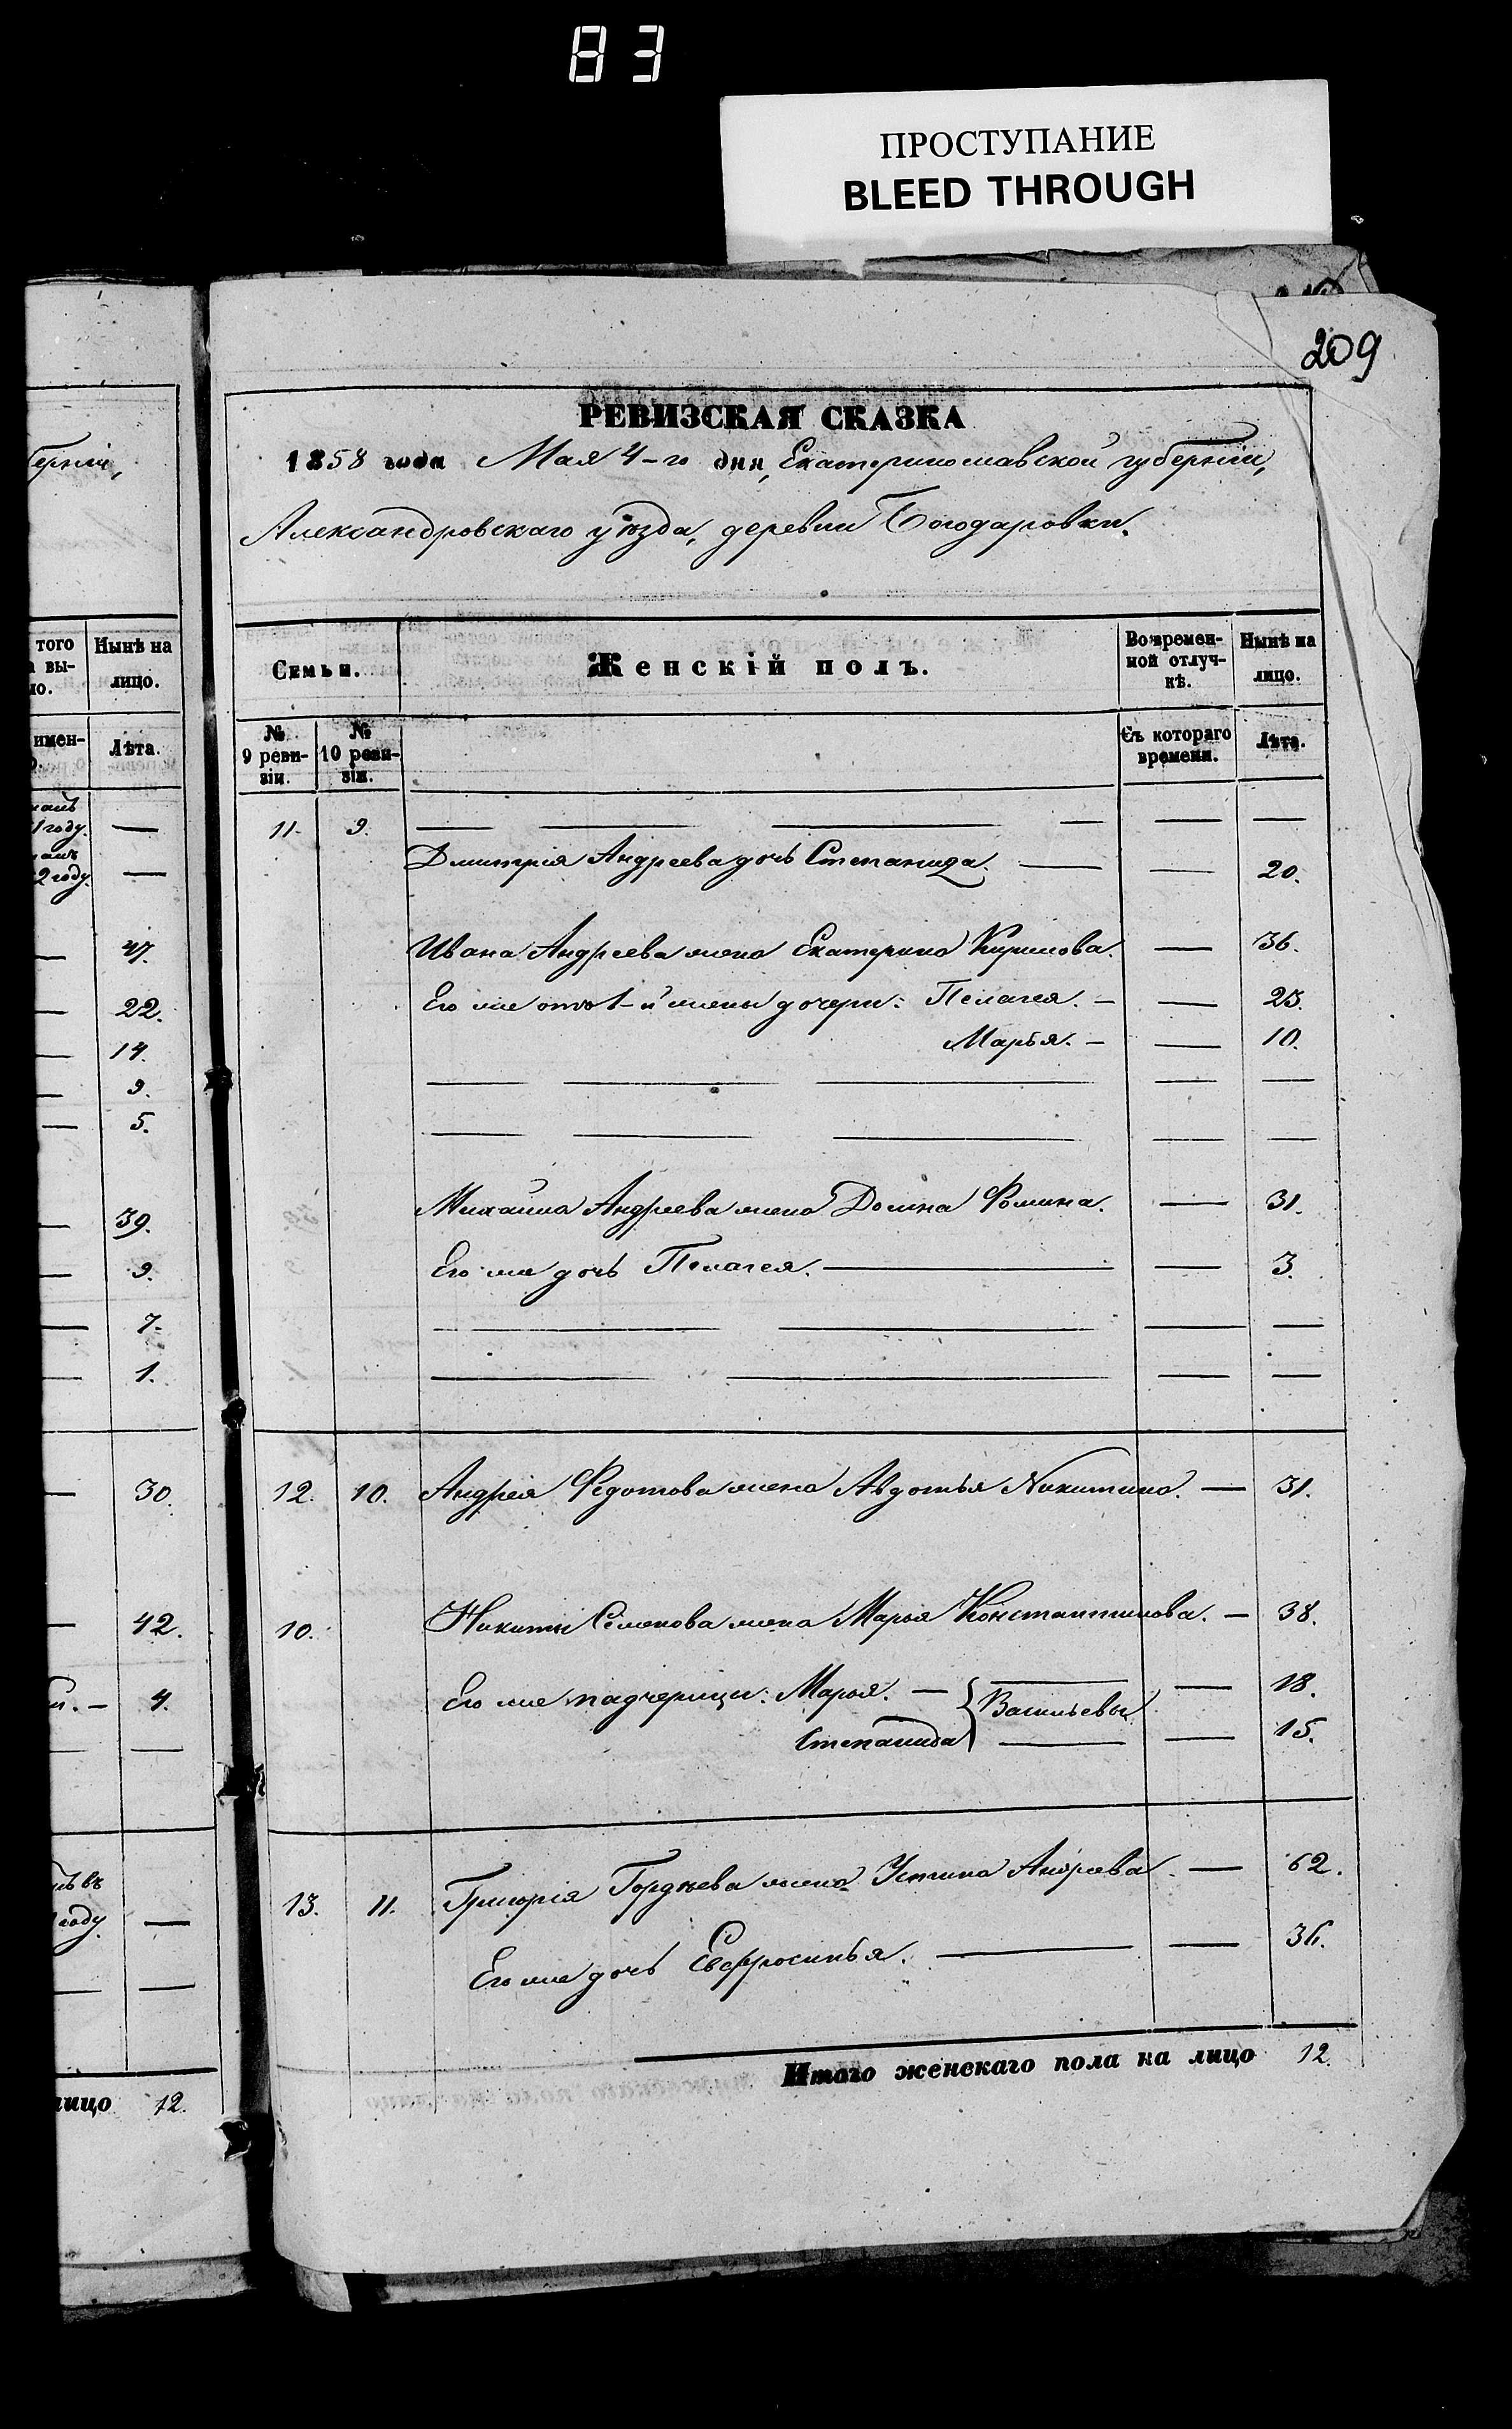 83
ПРОСТУПАНИЕ
BLEED THROUGH
209
РЕВИЗСКАЯ СКАЗКА
1858 года Мая 4-го дня, Екатеринославской губерніи,
Александровскаго уѣзда, деревни Богодаровки.
Семьи.
Женскій полъ.
Во времен-
ной отлуч-
кѣ.
Нынѣ на
лицо.
№
9 реви-
зіи.
№
10 реви-
зіи.
Съ котораго
времени.
Лѣта.
11. 9.
Дмитрія Андреева дочь Степанида. 20.
Ивана Андреева жена Екатерина Кирилова. 36.
Его же отъ 1-й жены дочери: Пелагея. 23.
Марья. 10.
Михаила Андреева жена Домна Фомина. 31.
Его же дочь Пелагея. 3.
12. 10. Андрея Федотова жена Авдотья Никитина. 31.
10. Никиты Семенова жена Марья Константинова. 38.
Его же падчерицы: Марья. 18.
Васильевы
Степанида 15.
13. 11. Григорія Гордѣева жена Устина Андреева. 62.
Его же дочь Евфросинья. 36.
Итого женскаго пола на лицо 12.
берніи,
того
вы-
Нынѣ на
лицо.
имен-
Лѣта.
году.
2 году.
47.
22.
14.
9.
5.
39.
9.
7.
1.
30.
42.
4.
году
лицо 12.